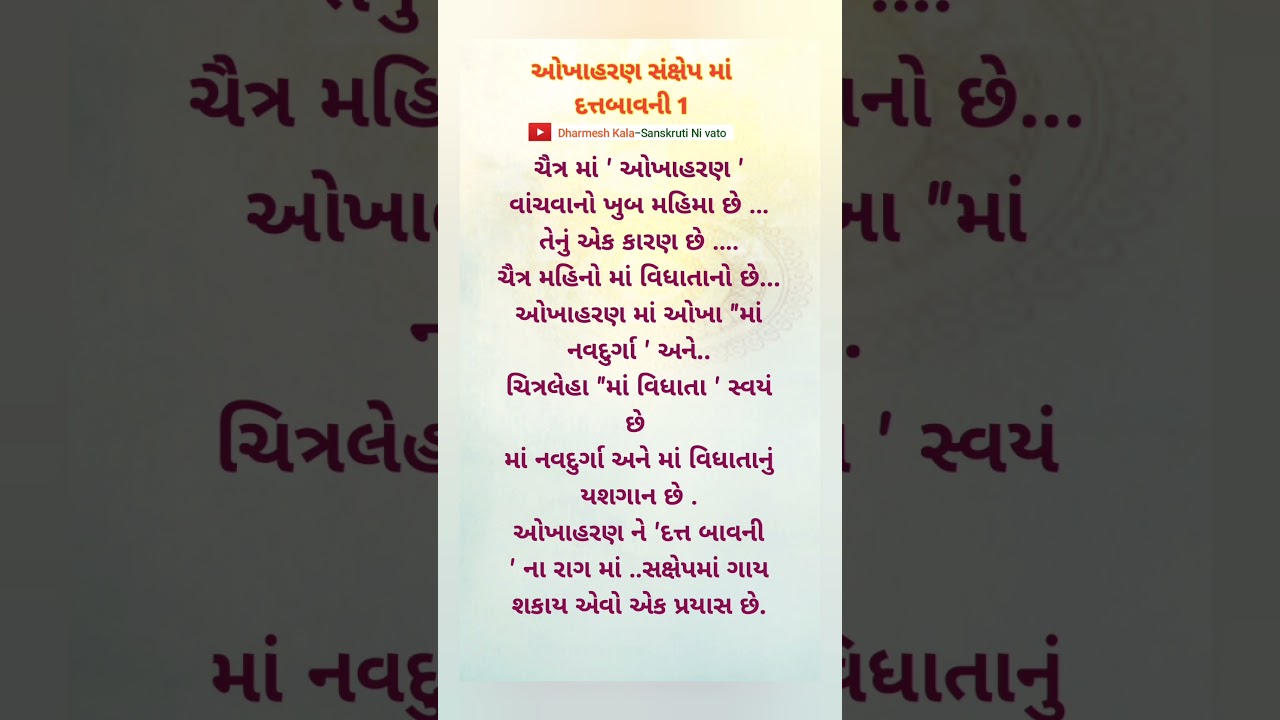 ઓખાહરણ સંક્ષેપ માં
દત્તબાવની 1
Dharmesh Kala-Sanskruti Ni vato
ચૈત્ર માં ' ઓખાહરણ '
વાંચવાનો ખુબ મહિમા છે ...
તેનું એક કારણ છે ....
ચૈત્ર મહિનો માં વિધાતાનો છે...
ઓખાહરણ માં ઓખા "માં
નવદુર્ગા ' અને..
ચિત્રલેહા "માં વિધાતા ' સ્વયં
છે
માં નવદુર્ગા અને માં વિધાતાનું
યશગાન છે .
ઓખાહરણ ને 'દત્ત બાવની
' ના રાગ માં ..સક્ષેપમાં ગાય
શકાય એવો એક પ્રયાસ છે.